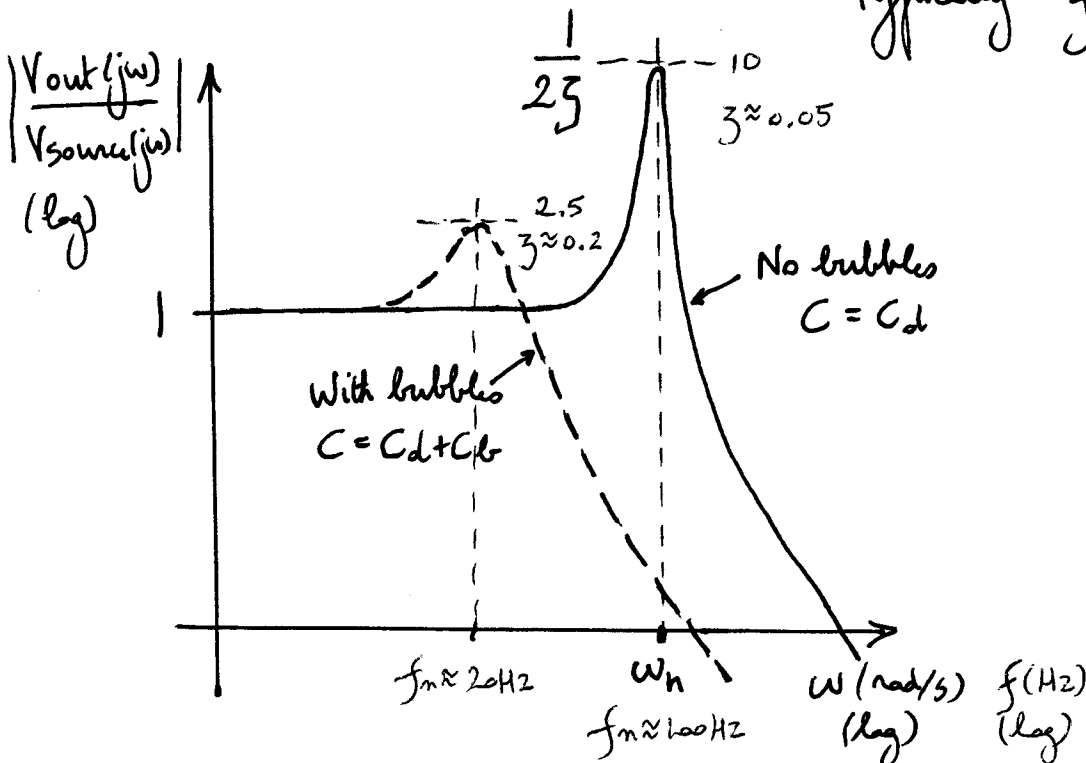 Typically
|Vout(jω)
Vsource(jω)|
(log)
1
2ζ
10
ζ≈0.05
2.5
ζ≈0.2
No bubbles
C = Cd
1
With bubbles
C = Cd+Cb
fn≈20Hz
ωn
fn≈100HZ
ω (rad/s) f(Hz)
(log) (log)